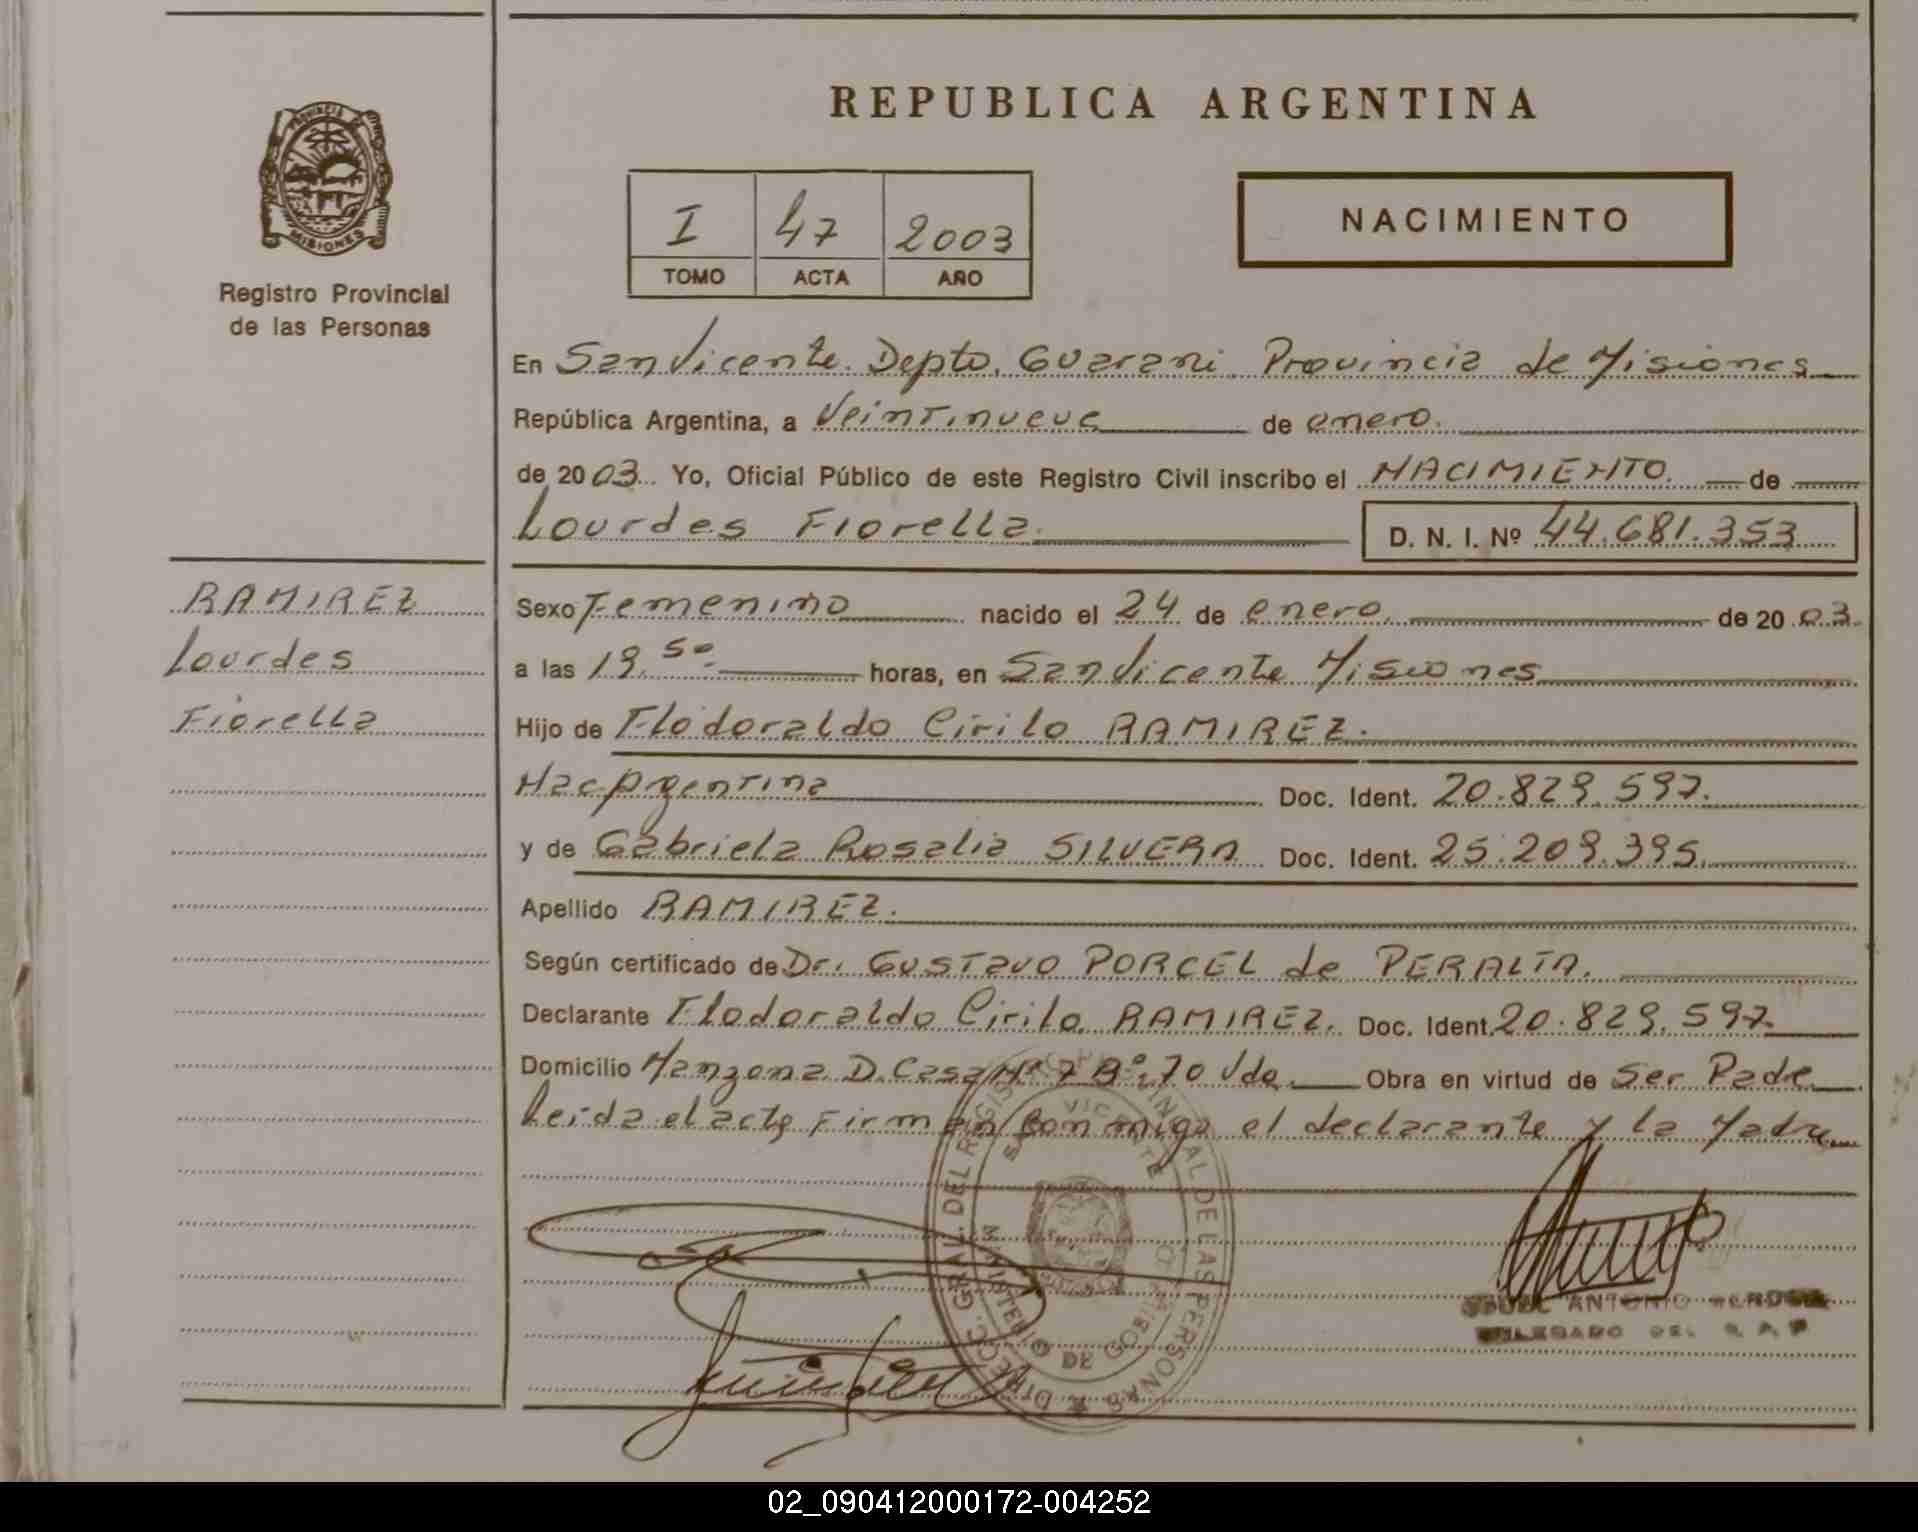 REPUBLICA ARGENTINA
PROVINCIA DE
MISIONES
Registro Provincial
de las Personas
I 47 2003
TOMO ACTA AÑO
NACIMIENTO
En San Vicente. Depto. Guarani. Provincia de Misiones
República Argentina, a Veintinueve de enero.
de 2003. Yo, Oficial Público de este Registro Civil inscribo el NACIMIENTO. de
Lourdes Fiorella. D. N. I. Nº 44.681.353
RAMIREZ
Lourdes
Fiorella
Sexo Femenino nacido el 24 de enero. de 2003.
a las 19.50. horas, en San Vicente Misiones
Hijo de Flodoraldo Cirilo RAMIREZ.
Nac Argentina Doc. Ident. 20.829.597.
y de Gabriela Rosalia SILVERA Doc. Ident. 25.209.395.
Apellido RAMIREZ.
Según certificado de Dr. GUSTAVO PORCEL de PERALTA.
Declarante Flodoraldo Cirilo RAMIREZ. Doc. Ident. 20.829.597
Domicilio Manzana D. Casa Nº 7 Bº 70 Vdas Obra en virtud de Ser Padre
Leida el acta Firman conmigo el declarante y la Madre
DIREC. GRAL. DEL REGISTRO PROVINCIAL DE LAS PERSONAS
SAN VICENTE
MINISTERIO DE GOBIERNO
ANTONIO
DELEGADO DEL R. P. P.
02_090412000172-004252